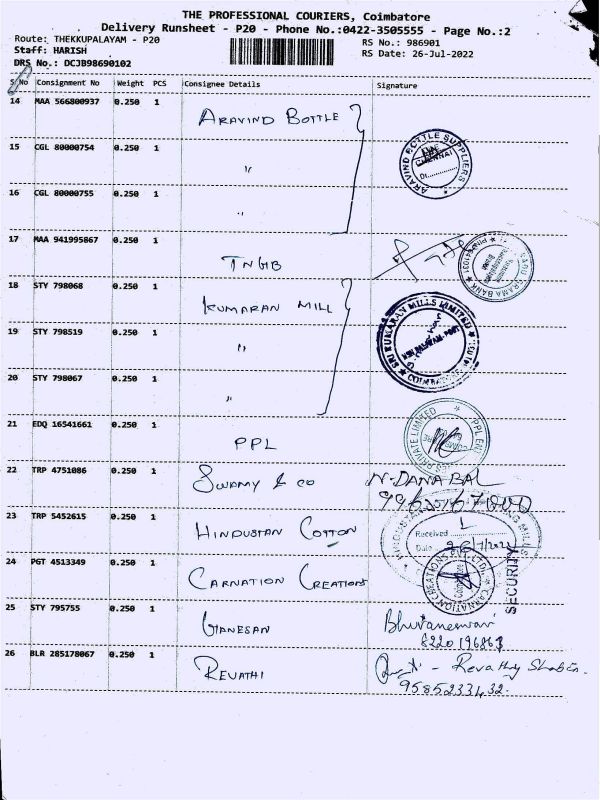 THE PROFESSIONAL COURIERS, Coimbatore
Delivery Runsheet - P20 - Phone No.:0422-3505555 - Page No.:2
Route: THEKKUPALAYAM - P20
RS No.: 986901
Staff: HARISH
RS Date: 26-Jul-2022
DRS No.: DCJB98690102
S No Consignment No Weight PCS Consignee Details Signature
14 MAA 566800937 0.250 1 ARAVIND BOTTLE
ARAVIND BOTTLE SUPPLIERS
15 CGL 80000754 0.250 1 "
16 CGL 80000755 0.250 1 "
17 MAA 941995867 0.250 1 TNGB
GRAMA BANK
18 STY 798068 0.250 1 KUMARAN MILL
SRI KUMARAN MILLS LIMITED
19 STY 798519 0.250 1 "
20 STY 798067 0.250 1 "
21 EDQ 16541661 0.250 1 PPL
22 TRP 4751086 0.250 1 SWAMY & CO N. DANA BAL
23 TRP 5452615 0.250 1 HINDUSTAN COTTON
Received
Date 26/7/2022
24 PGT 4513349 0.250 1 CARNATION CREATIONS
SECURITY
25 STY 795755 0.250 1 GANESAN Bhuvaneswari
8220196863
26 BLR 285178067 0.250 1 REVATHI Revathy
9585233432.